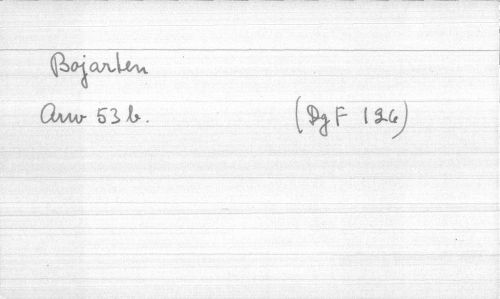 Bojarten
Arw 53 b. (DgF 126)